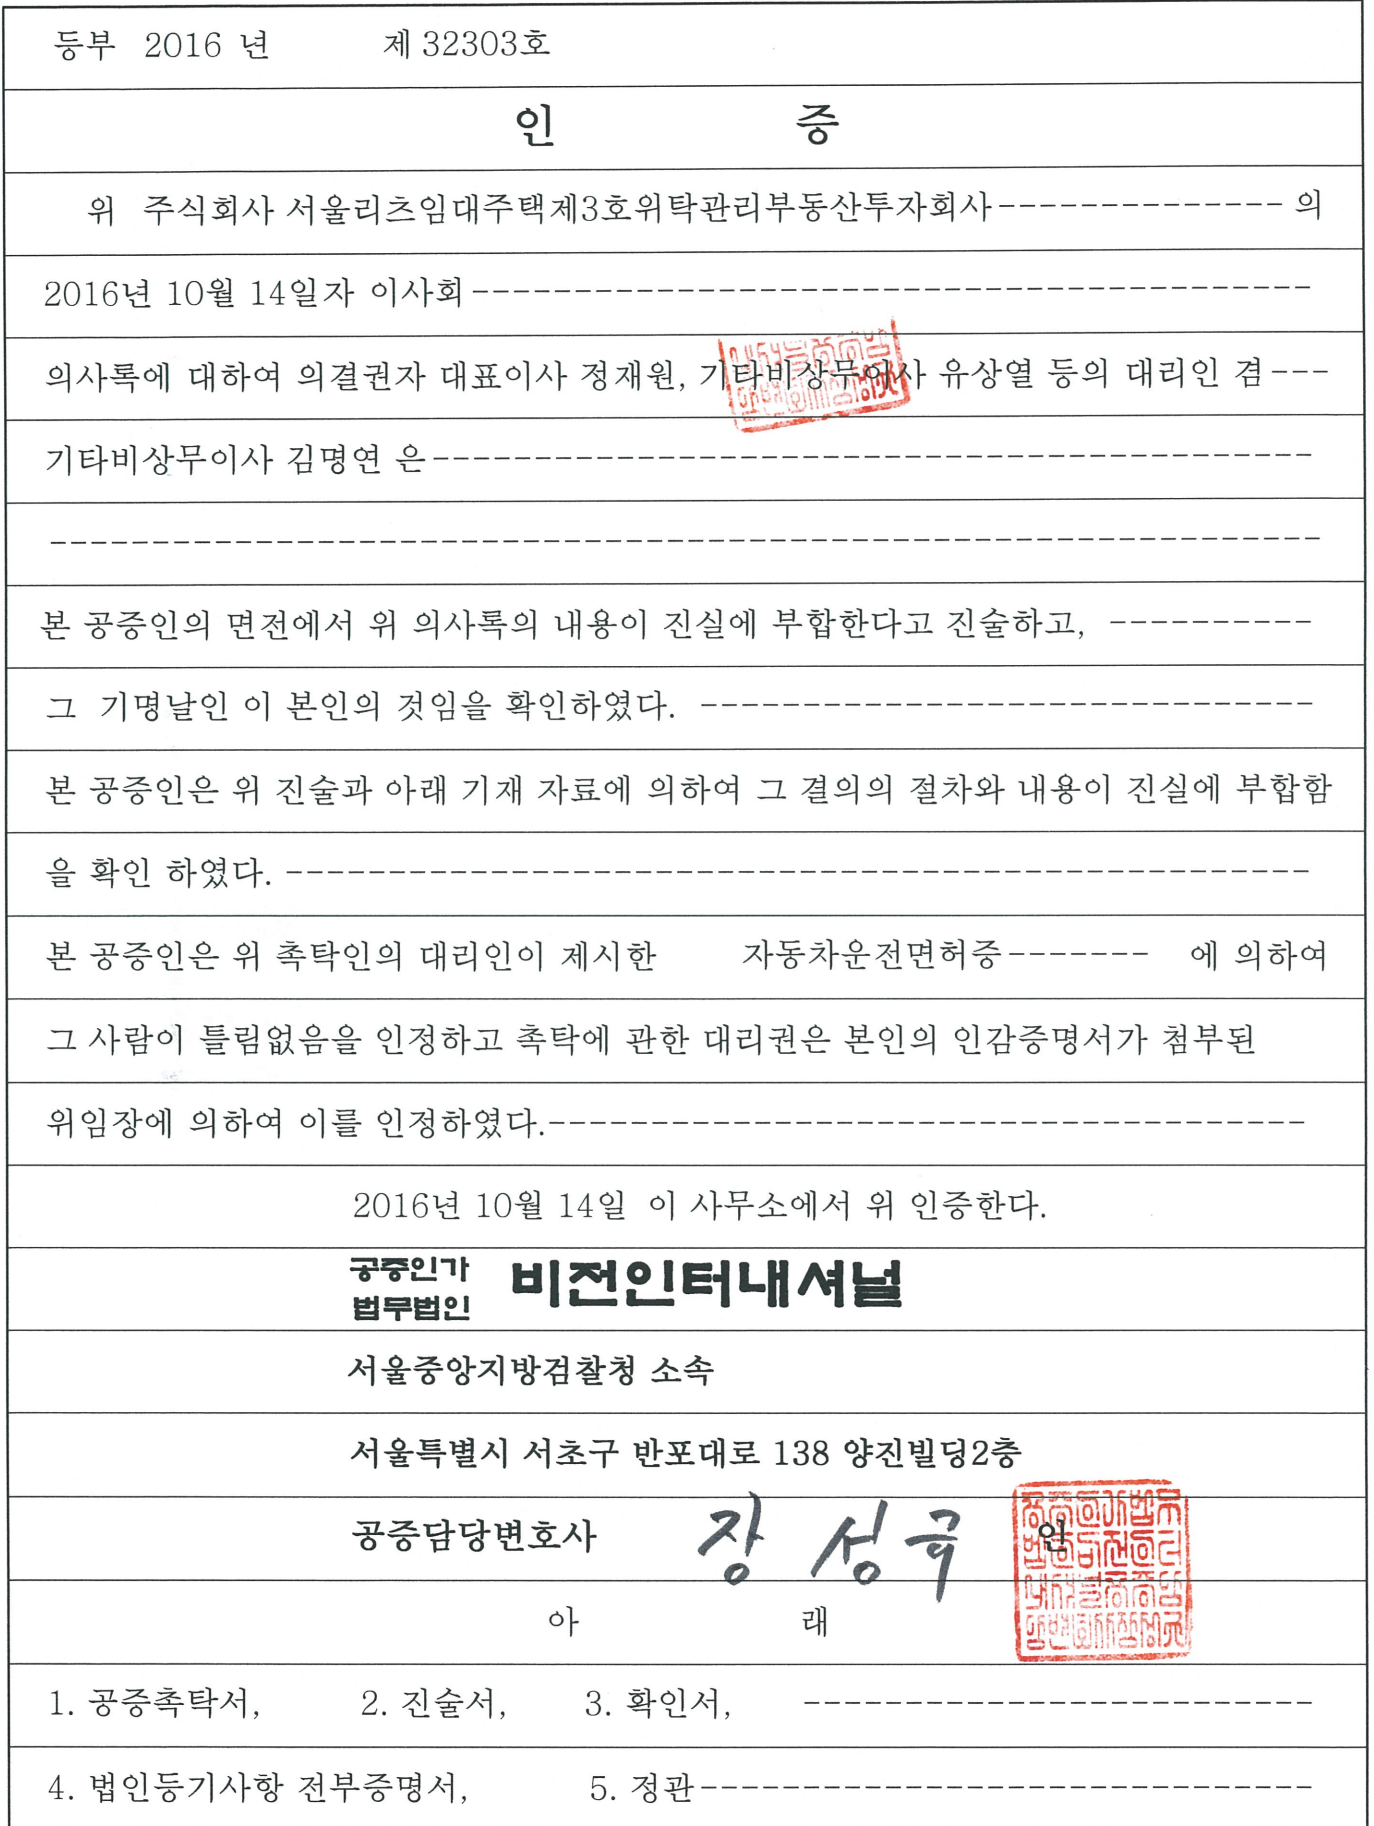 등부 2016 년 제 32303호
인 증
위 주식회사 서울리츠임대주택제3호위탁관리부동산투자회사-------------- 의
2016년 10월 14일자 이사회-----------------------------------------
의사록에 대하여 의결권자 대표이사 정재원, 기타비상무이사 유상열 등의 대리인 겸---
기타비상무이사 김명연 은-------------------------------------------
--------------------------------------------------------------
본 공증인의 면전에서 위 의사록의 내용이 진실에 부합한다고 진술하고, ----------
그 기명날인 이 본인의 것임을 확인하였다. ------------------------------
본 공증인은 위 진술과 아래 기재 자료에 의하여 그 결의의 절차와 내용이 진실에 부합함
을 확인 하였다. --------------------------------------------------
본 공증인은 위 촉탁인의 대리인이 제시한 자동차운전면허증------- 에 의하여
그 사람이 틀림없음을 인정하고 촉탁에 관한 대리권은 본인의 인감증명서가 첨부된
위임장에 의하여 이를 인정하였다.-------------------------------------
2016년 10월 14일 이 사무소에서 위 인증한다.
공증인가 법무법인 비전인터내셔널
서울중앙지방검찰청 소속
서울특별시 서초구 반포대로 138 양진빌딩2층
공증담당변호사 장성국 인
아 래
1. 공증촉탁서, 2. 진술서, 3. 확인서, -------------------------
4. 법인등기사항 전부증명서, 5. 정관------------------------------